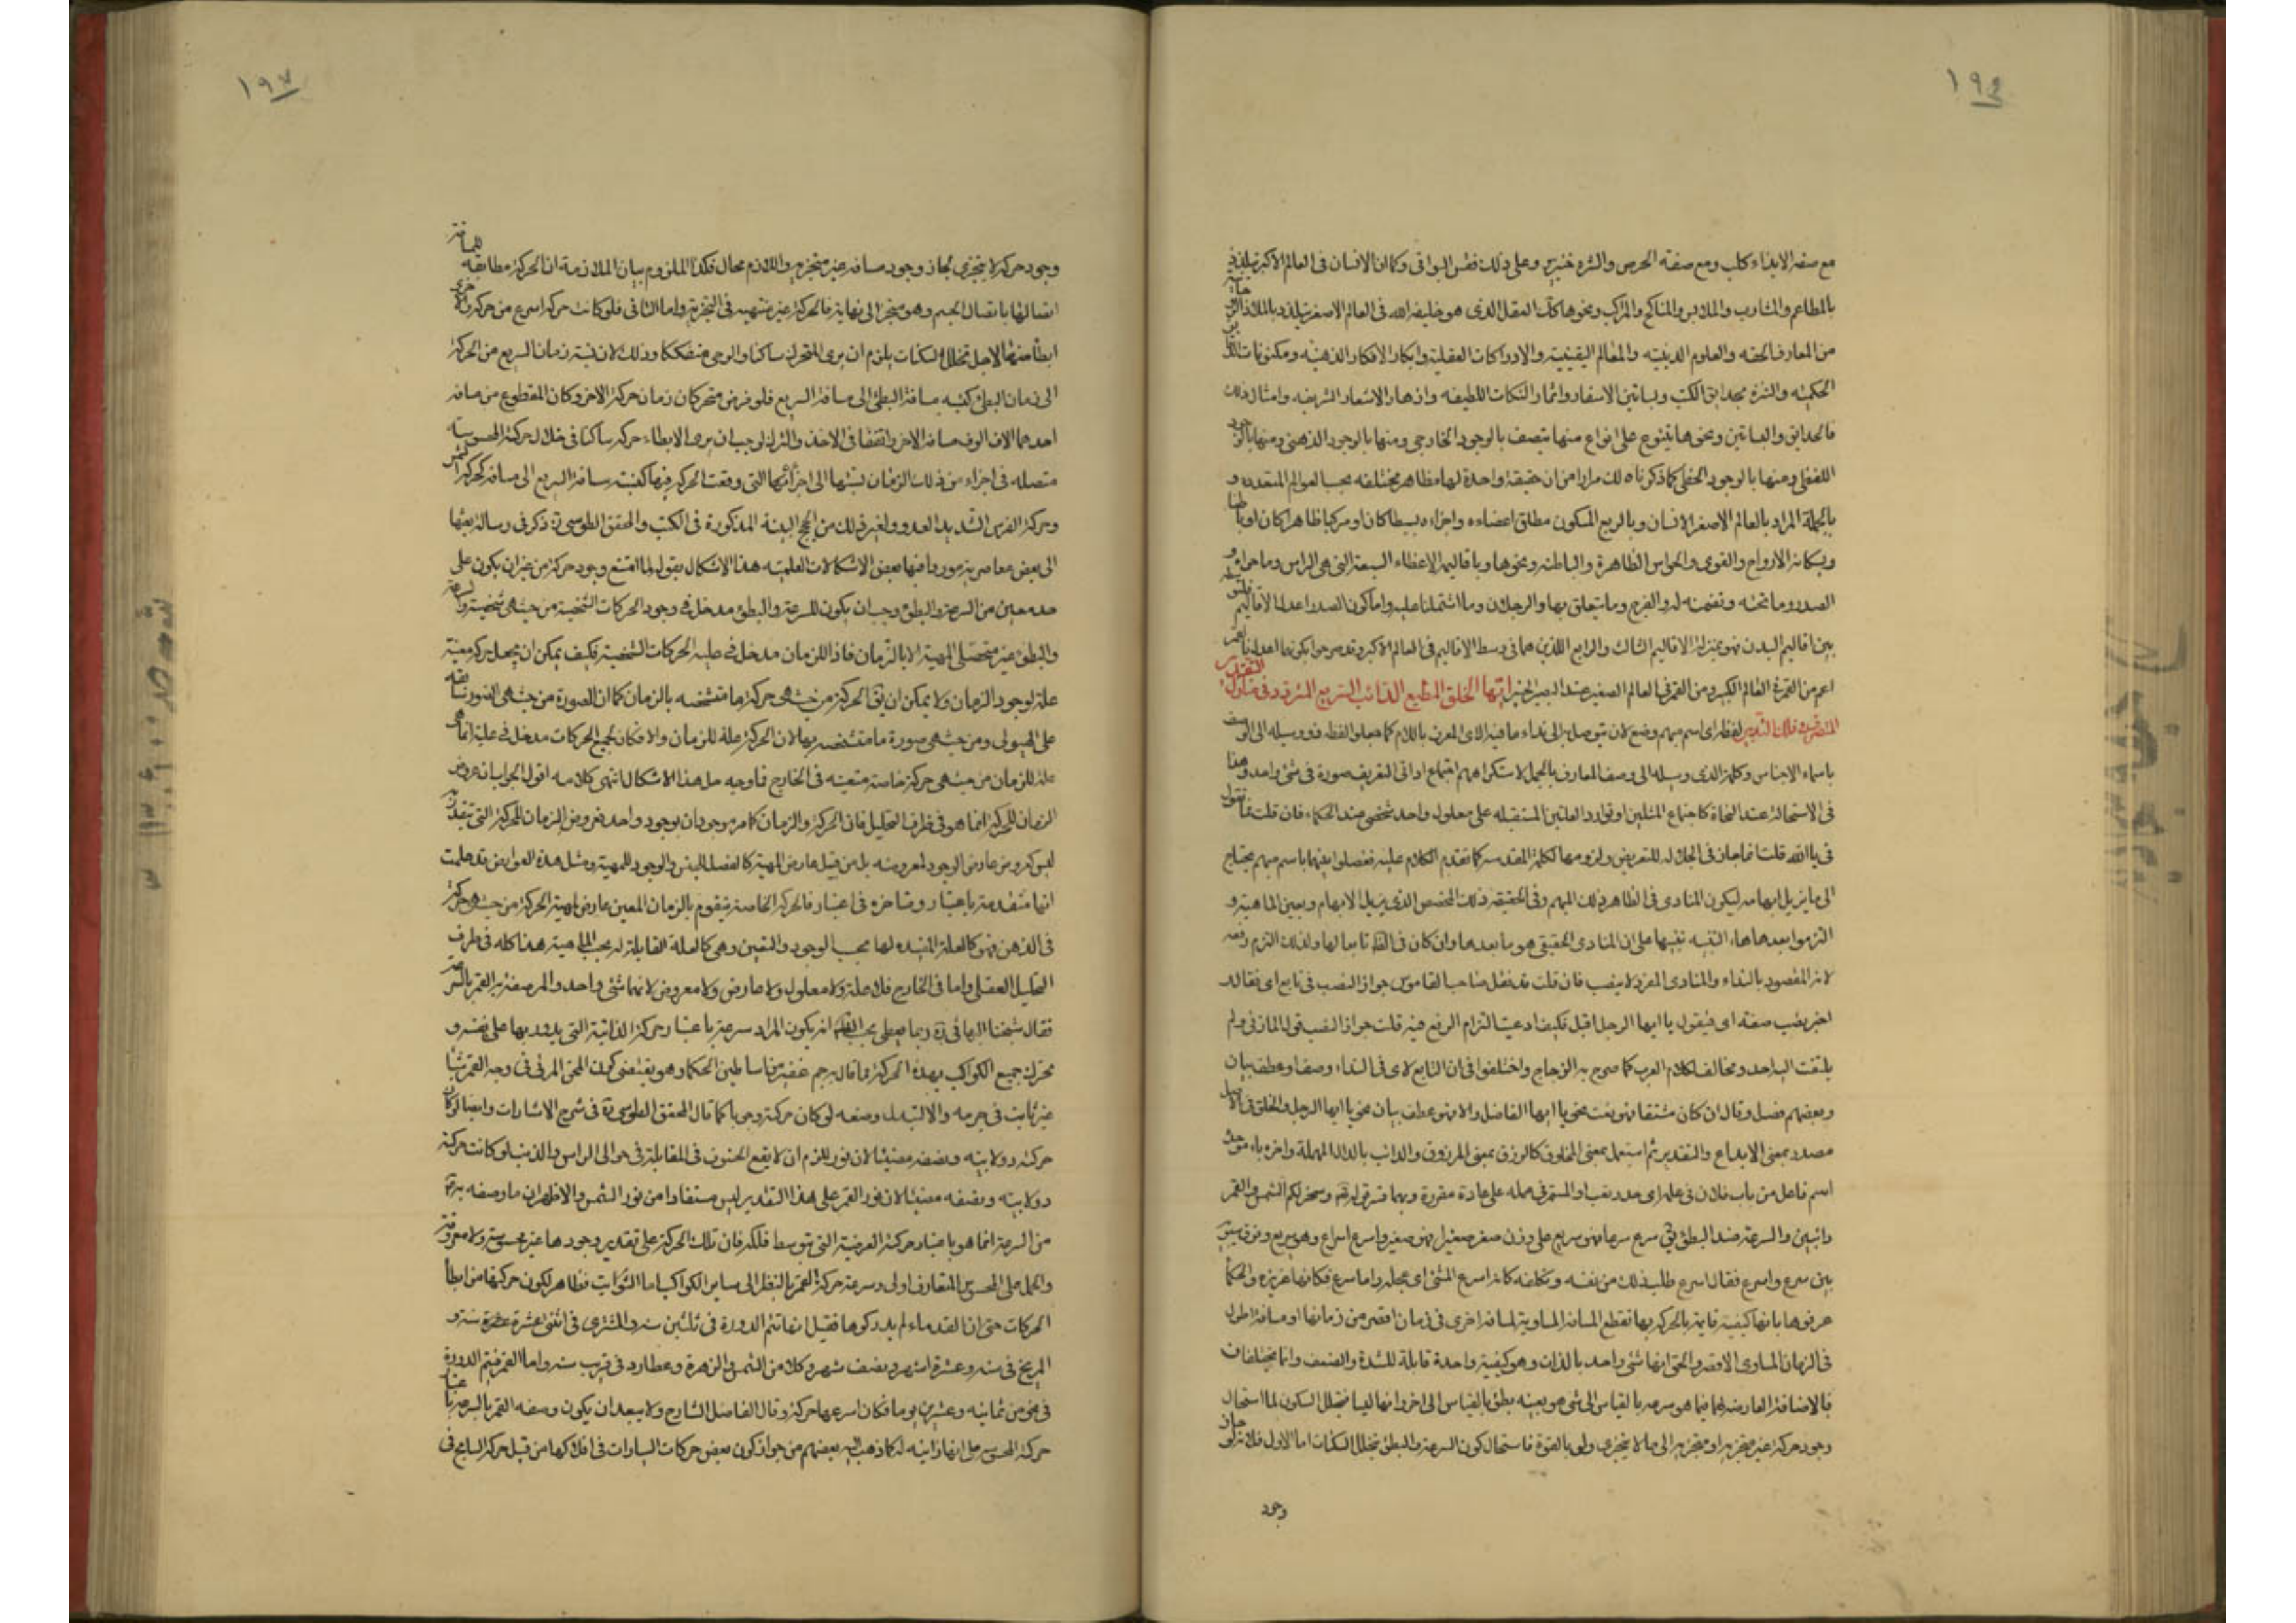 ١٩٦
مع صفة الايذاء كلب ومع صفة الحرص والشره خنزير وعلى ذلك فقس البواقى وكما ان الانسان فى العالم الاكبر يتلذذ
بالمطاعم والمشارب والملابس والمناكح والمراكب ونحوها كك العقل الذى هو خليفة الله فى العالم الاصغر يتلذذ بالملاذ
من المعارف الحقه والعلوم الدينيه والمعالم اليقينية والادراكات العقلية وابكار الافكار الذهنيه ومكنونات
الحكميه والتنزه بحدايق الكتب وبساتين الاسفار واثمار النكات اللطيفه وازهار الاشعار الشريفه وامثال ذلك
فالحدايق والبساتين ونحوها يتنوع على انواع منها يتصف بالوجود الخارجى ومنها بالوجود الذهنى ومنها بالوجود
اللفظى ومنها بالوجود الخطى كما ذكرناه لك مرارا من ان حقيقة واحدة لها مظاهر مختلفه بحسب العوالم المتعدده و
بالجملة المراد بالعالم الاصغر الانسان وبالربع المسكون مطلق اعضاءه واجزاءه بسيطا كان او مركبا ظاهرا كان او باطنا
وبسكانه الارواح والقوى والحواس الظاهرة والباطنه ونحوها وباقاليمه الاعضاء السبعة التى هى الراس وما حواه و
الصدر وما تحته وتضمنه والفرج وما يتعلق بها والرجلان وما اشتملتا عليه واما كون الصدر اعدل الاقاليم
بين اقاليم البدن فهو بمنزلة الاقاليم الثالث والرابع اللذين هما فى وسط الاقاليم فى العالم الاكبر وقد صرحوا بكونها اعدلها
اعم من القمر فى العالم الكبير ومن القمر فى العالم الصغير عند البصير الخبير ايها الخلق المطيع الدائب السريع المتردد فى منازل التقدير
المتصرف فى فلك التدبير لفظة اى اسم مبهم وضع لان يتوصل به الى نداء ما فيه الالف المعرف باللام كما جعلوا لفظه ذو وسيله الى الوصف
باسماء الاجناس وكلمة الذى وسيله الى وصف المعارف بالجمل لاستكراههم اجتماع اداتى التعريف صورة فى شئ واحد وهذا
فى الاستحالة عند النحاة كاجتماع المثلين او توارد العلتين المستقله على معلول واحد شخصى عند الحكماء فان قلت فما تقول
فى يا الله قلت انما جاز فى الجلاله للتعويض ولزومها لكلمة المقدسه كما تقدم الكلام عليه ففصلوا بينهما باسم مبهم يحتاج
الى ما يزيل ابهامه ليكون المنادى فى الظاهر ذلك المبهم وفى الحقيقة ذلك المخصص الذى يزيل الابهام ويعين الماهية و
التزموا بعدها هاء التنبيه تنبيها على ان المنادى الحقيقى هو ما بعدها وان كان فى اللفظ تابعا لها ولذلك التزم رفعه
لانه المقصود بالنداء والمنادى المفرد لا ينصب فان قلت قد نقل صاحب القاموس جواز النصب فى تابع اى فقال
اجيز نصب صفة اى فتقول يا ايها الرجل اقبل فكيف ادعيت التزام الرفع فيه قلت جواز النصب قول المازنى ولم
يلتفت اليه احد ومخالف لكلام العرب كما صرح به الزجاج واختلفوا فى ان التابع لاى فى النداء وصف او عطف بيان
وبعضهم فصل وقال ان كان مشتقا فهو نعت نحو يا ايها الفاضل والا فهو عطف بيان نحو يا ايها الرجل والخلق فى الاصل
مصدر بمعنى الابداع والتقدير ثم استعمل بمعنى المخلوق كالرزق بمعنى المرزوق والدائب بالدال المهملة واخره باء موحدة
اسم فاعل من داب فلان فى عمله اى جد وتعب او المستمر فى عمله على عادة مقررة وبهما فسر قوله تع وسخر لكم الشمس والقمر
دائبين والسرعة ضد البطؤ يق سرع سرعا فهو سريع على وزن صغر صغرا فهو صغير واسرع اسراع وهو سريع وفرق سيبويه
بين سرع واسرع فقال اسرع طلب ذلك من نفسه وتكلفه كانه اسرع المشى اى عجله واما سرع فكانها غريزه والحكما
عرفوها بانها كيفية قايمة بالحركه بها تقطع المسافة المساوية لمسافة اخرى فى زمان اقصر من زمانها او مسافة اطول
فى الزمان المساوى او الاقصر والحق انها شئ واحد بالذات وهو كيفية واحدة قابلة للشدة والضعف وانما يختلفان
بالاضافة العارضه لهما فما هو سرعه بالقياس الى شئ هو بعينه بطؤ بالقياس الى اخر وانها ليسا بتخلل السكون لما استحال
وجود حركة غير متجزيه او متجزيه الى ما لا يتجزى ولو بالقوة فاستحال كون السرعة والبطؤ بتخلل السكنات اما الاول فلانه لو جاز
وجود
١٩٧
وجود حركة لا يتجزى لجاز وجود مسافه غير متجزيه واللازم محال فكذا الملزوم بيان الملازمة ان الحركة مطابقه للمسافة
اتصالها باتصال الجسم وهو متجز الى نهاية فالحركة غير منتهيه فى التجزيه واما الثانى فلو كانت حركة اسرع من حركة اخرى
ابطأ منها لاجل تخلل السكنات يلزم ان يرى المتحرك ساكنا والرحى متفككا وذلك لان نسبة زمان السريع من الحركة
الى زمان البطئ كنسبه مسافة البطئ الى مسافة السريع فلو فرض متحركان زمان حركة الاخر وكان المقطوع من مسافه
احدهما الاف الوف مسافه الاخر واتفقا فى الاخذ والترك لوجب ان يرى الابطاء حركه ساكنا فى خلال حركة المحسوسة
متصله فى اجزاء من ذلك الزمان نسبتها الى اجزائها التى وقعت الحركه فيها كنسبة مسافة السريع الى مسافه كحركة الشمس
وحركة الفرس الشديد العدو ولغير ذلك من الحجج البينة المذكورة فى الكتب والمحقق الطوسى ره ذكر فى رسالة بعثها
الى بعض معاصريه موردا فيها بعض الاشكالات العلميه هذا الاشكال بقوله لما امتنع وجود حركة من غير ان يكون على
حد معين من السرعة والبطؤ وجب ان يكون للسرعة والبطؤ مدخل فى وجود الحركات الشخصية من حيث هى شخصية والسرعة
والبطؤ غير متحصلى المهية الا بالزمان فاذا للزمان مدخل فى علية الحركات الشخصية فكيف يمكن ان يجعل حركه معينة
علة لوجود الزمان ولا يمكن ان يق الحركة من حيث هى حركة ما متشخصه بالزمان كما ان الصورة من حيث هى الصورة سابقه
على الهيولى ومن حيث هى صورة ما متشخصه بها لان الحركة علة للزمان والا فكان لجميع الحركات مدخل فى علية انما هى
علة للزمان من حيث هى حركة خاصة متعينه فى الخارج فما وجه حل هذا الاشكال انتهى كلامه اقول الجواب ان عروض
الزمان للحركة انما هو فى ظرف التحليل فان الحركة والزمان كما مر موجودان بوجود واحد فعروض الزمان للحركة التى تتقدر
ليس كعروض عارض الوجود لمعروضه بل من قبيل عارض المهية كالفصل للجنس والوجود للمهية ومثل هذه العوارض قد علمت
انها متقدمة باعتبار ومتاخره فى اعتبار فالحركة الخاصة تتقوم بالزمان المعين عارض لمهية الحركة من حيث هى حركة
فى الذهن فهو كالعلة المفيده لها بحسب الوجود والتعين وهى كالعلة القابلة له بحسب الماهية هذا كله فى ظرف
التحليل العقلى واما فى الخارج فلا علة ولا معلول ولا عارض ولا معروض لانهما شئ واحد والمر صفته القمر بالسرعة
فقال شيخنا البهائى ره ربما يعطى بحسب الظاهر انه يكون المراد سرعته باعتبار حركة الذاتية التى يدور بها على نفسه و
تحرك جميع الكواكب بهذه الحركة مما قال به جم غفير من اساطين الحكما وهو يقتضى كون المحو المرئى فى وجه القمر شيئا
غير ثابت فى جرمه والا لتبدل وضعه لو كان حركته وجوبا كما قال المحقق الطوسى ره فى شرح الاشارات وايضا لو كان
حركته دولابيه ونصفه مضيئا لان نوره لزم ان لا يقع الخسوف فى المقابلة فى حوالى الراس والذنب لو كانت حركته
دولابيه ونصفه مضيئا لان نور القمر على هذا التقدير ليس مستفادا من نور الشمس والاظهر ان ما وصفه به ع
من السرعة انما هو باعتبار حركته العرضية التى بتوسط فلكه فان تلك الحركة على تقدير وجودها غير محسوسة ولا معروفة
والحمل على المحسوس المتعارف اولى وسرعة حركة القمر بالنظر الى ساير الكواكب اما الثوابت فظاهر لكون حركتها من ابطأ
الحركات حتى ان القدماء لم يدركوها فقيل انها تتم الدورة فى ثلثين سنه والمشترى فى اثنى عشرة سنة و
المريخ فى سنه وعشرة اشهر ونصف شهر وكلا من الشمس والزهرة وعطارد فى قريب سنه واما القمر فيتم الدورة
فى نحو من ثمانيه وعشرين يوما فكان اسرعها حركة وقال الفاضل الشارح ولا يبعد ان يكون وصفه القمر بالسرعة باعتبار
حركة المحسوسه على انها ذاتيه له كما ذهب اليه بعضهم من جواز كون بعض حركات السيارات فى افلاكها من قبيل حركة السابح فى